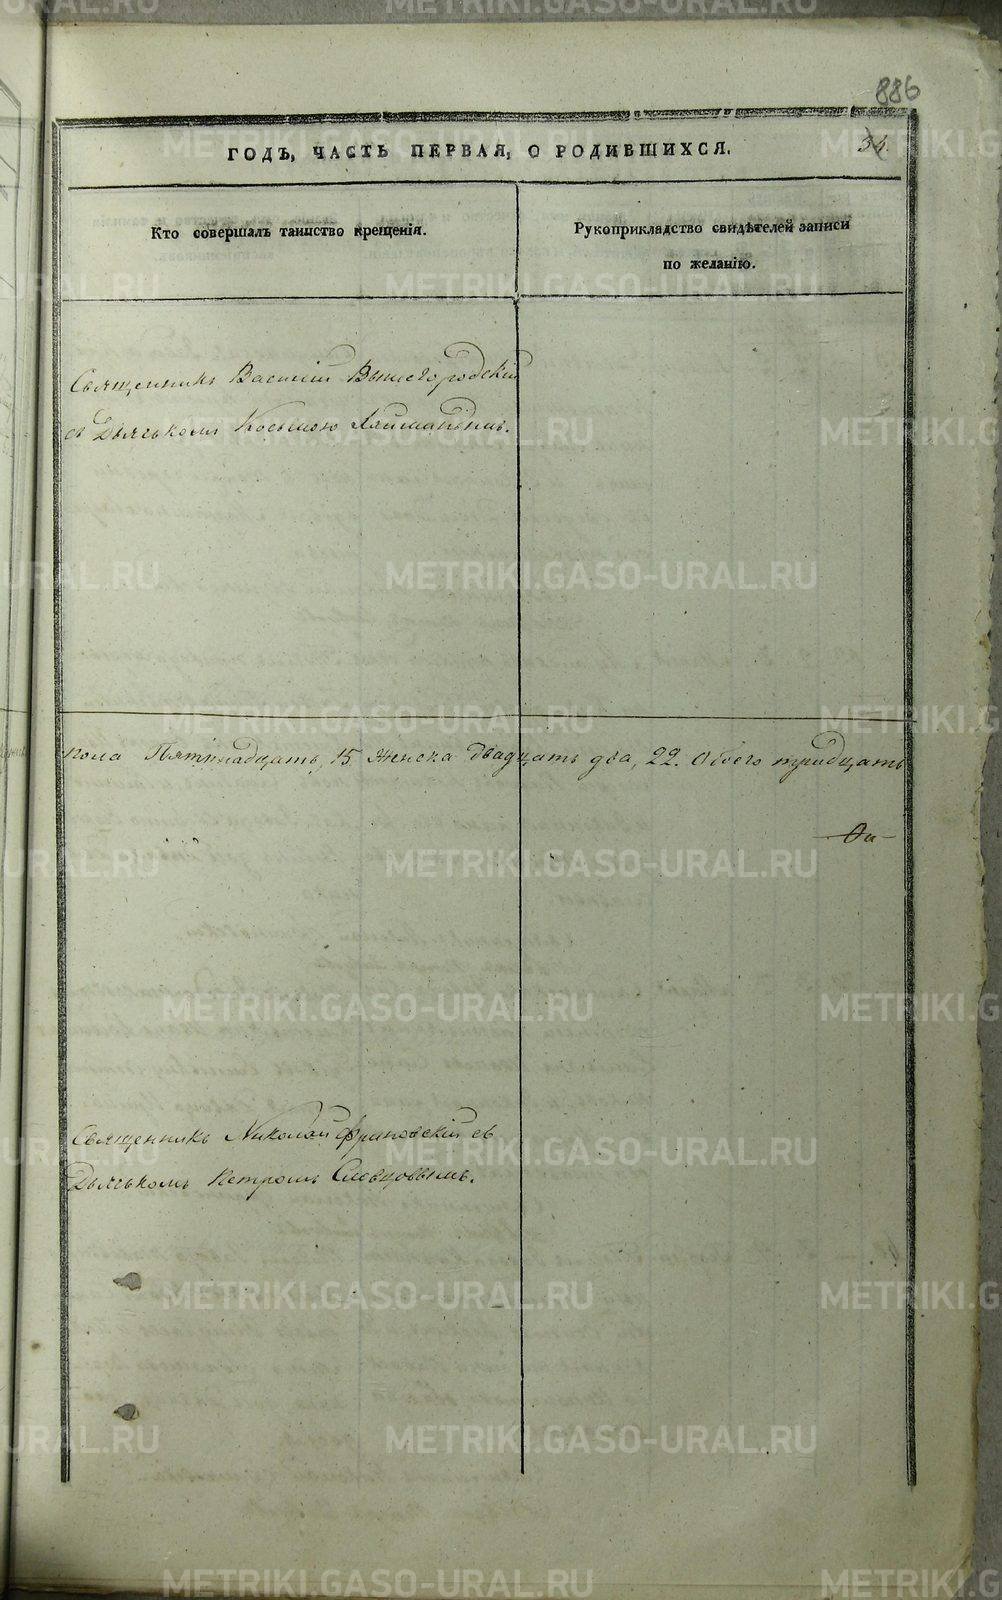 886
34.
ГОДЪ, ЧАСТЬ ПЕРВАЯ, О РОДИВШИХСЯ.
Кто совершалъ таинство крещенія.
Рукоприкладство свидѣтелей записи
по желанію.
Священникъ Василій Вышегородскій
съ Дьячькомъ Косьмою
пола Пятннадцать, 15 Женска двадцать два, 22. Обоего тридцать
Священникъ Николай Франовскій съ
Дьячькомъ Петромъ Словцовымъ.
METRIKI.GASO-URAL.RU